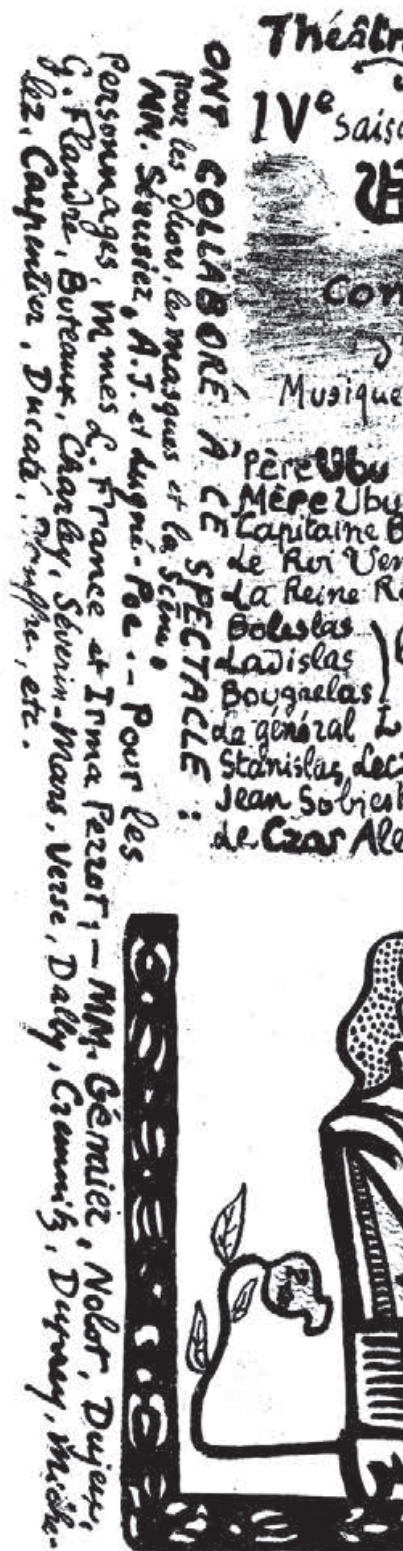 Théâtr
IVe saiso
Com
Musique
Père Ubu
Mère Ubu
Capitaine B
Le Roi Ven
La Reine R
Boleslas
Ladislas
Bougrelas
Le général L
Stanislas Lecz
Jean Sobiesk
Le Czar Ale
ONT COLLABORÉ À CE SPECTACLE :
pour les décors, les masques et la scène :
MM. Sérusier, A.J. et Lugné-Poe. – Pour les
Personnages, Mmes L. France et Irma Perrot ; – MM. Gémier, Nolot, Dujeu,
G. Flandre, Buteaux, Charley, Séverin-Mars, Verse, Dally, Czemnitz, Duprey, Miche-
lez, Carpentier, Ducaté, etc.